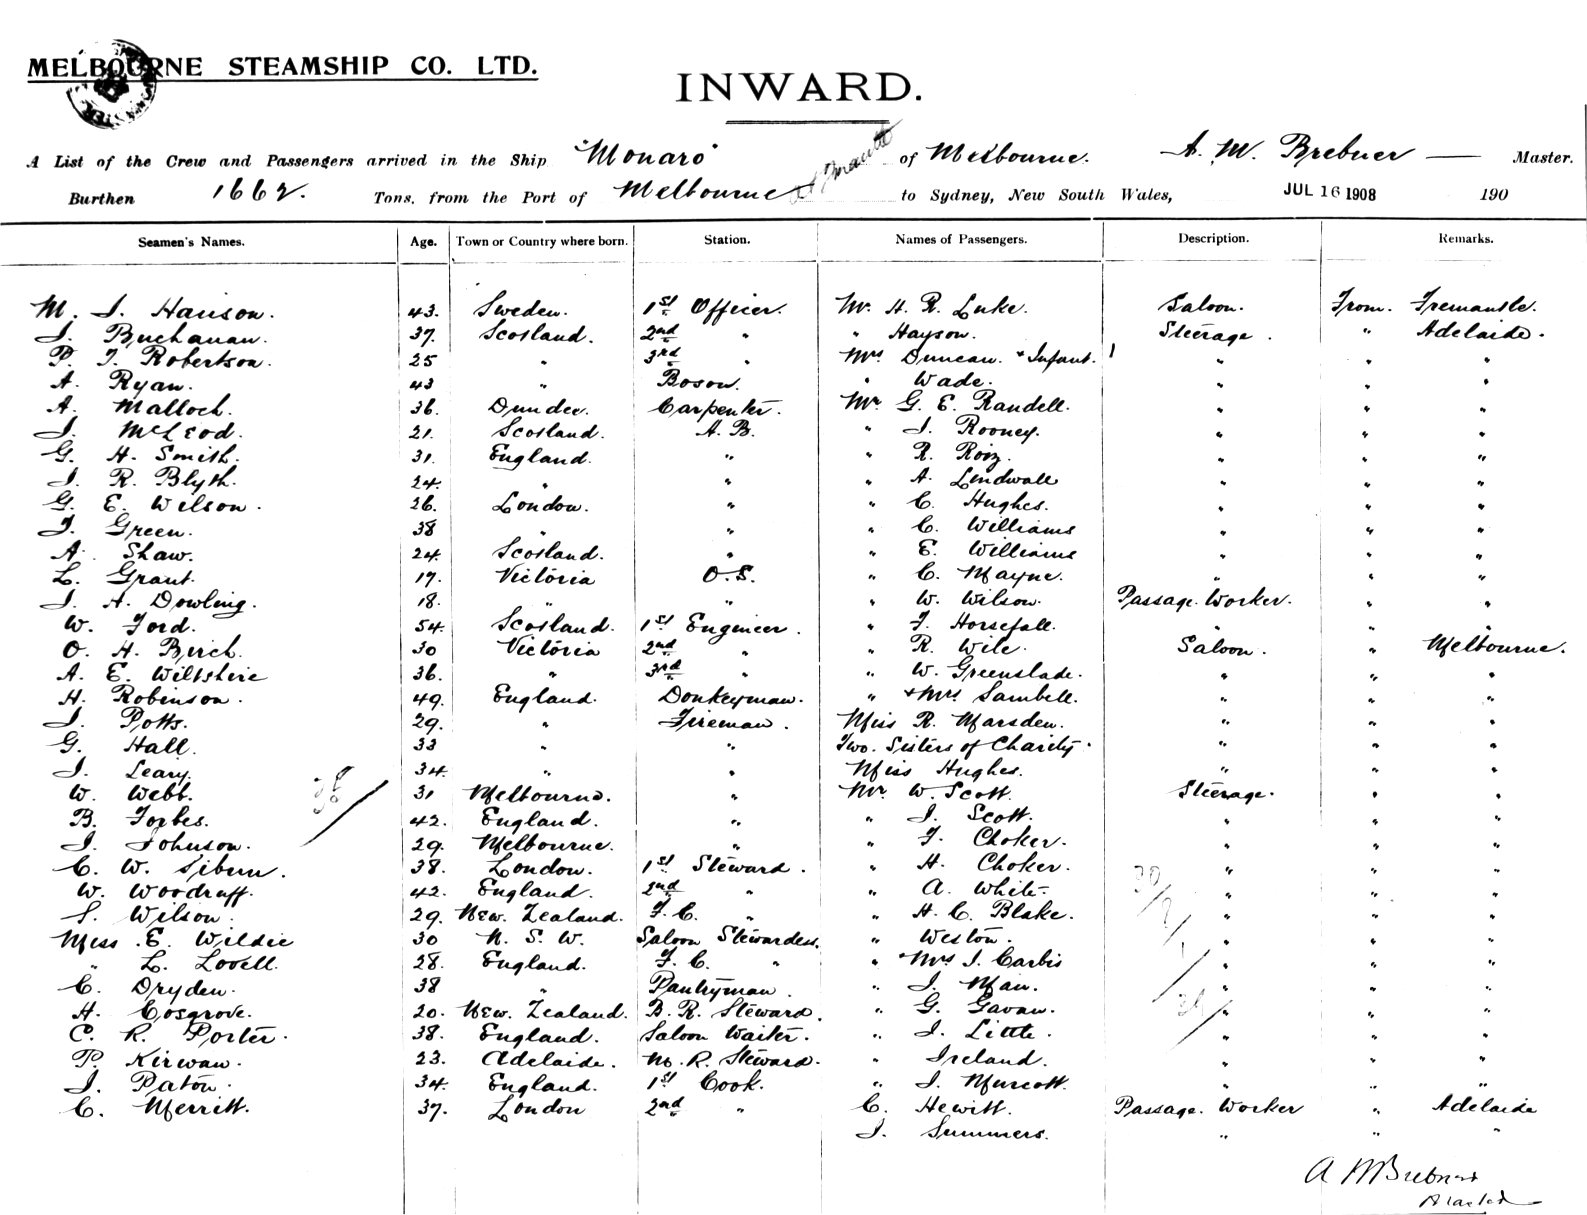 MELBOURNE STEAMSHIP CO. LTD.
INWARD.
A List of the Crew and Passengers arrived in the Ship "Monaro" of Melbourne. A. M. Brebner — Master.
Burthen 1662. Tons, from the Port of Melbourne to Sydney, New South Wales, JUL 16 1908 190
Seamen's Names. Age. Town or Country where born. Station. Names of Passengers. Description. Remarks.
M. J. Hanson. 43. Sweden. 1st Officer. Mr. H. R. Luke. Saloon. From. Fremantle.
J. Buchanan. 37. Scotland. 2nd " " Hayson. Steerage. " Adelaide.
P. T. Robertson. 25 " 3rd " Mrs Duncan. + Infant. 1 " " "
A. Ryan. 43 " Boson. " Wade. " " "
A. Malloch. 36. Dundee. Carpenter. Mr G. E. Randell. " " "
J. McLeod. 21. Scotland. A. B. " J. Rooney. " " "
G. H. Smith. 31. England. " " R. " " "
J. R. Blyth. 24. " " " A. Lindwall " " "
G. E. Wilson. 26. London. " " C. Hughes. " " "
J. Green. 38 " " " C. Williams " " "
A. Shaw. 24. Scotland. " " E. Williams " " "
L. Grant. 17. Victoria O.S. " C. Mayne. " " "
J. A. Dowling. 18. " " " W. Wilson. Passage. Worker. " "
W. Ford. 54. Scotland. 1st Engineer. " F. Horsefall. " " "
O. H. Birch. 30 Victoria 2nd " " R. Wile. Saloon. " Melbourne.
A. E. Wiltshire 36. " 3rd " " W. Greenslade. " " "
H. Robinson. 49. England. Donkeyman. " + Mrs Sambell. " " "
J. Potts. 29. " Fireman. Miss R. Marsden. " " "
G. Hall. 33 " " Two. Sisters of Charity. " " "
J. Leary. 34. " " Miss Hughes. " " "
W. Webb. 31 Melbourne. " Mr W. Scott. Steerage. " "
B. Forbes. 42. England. " " J. Scott. " " "
J. Johnson. 29. Melbourne. " " F. Choker. " " "
C. W. Sibun. 38. London. 1st Steward. " H. Choker. " " "
W. Woodruff. 42. England. 2nd " " A. White. " " "
S. Wilson. 29. New. Zealand. F. C. " " H. C. Blake. " " "
Miss E. Wildie 30 N. S. W. Saloon Stewardess. " Weston. " " "
" L. Lovell. 28. England. F. C. " " + Mrs J. Carbis " " "
C. Dryden. 38 " Pantryman. " J. Man. " " "
H. Cosgrove. 20. New. Zealand. B. R. Steward. " G. Gavan. " " "
C. R. Porter. 38. England. Saloon Waiter. " J. Little. " " "
P. Kirwan. 23. Adelaide. M. R. Steward. " Ireland. " " "
J. Paton. 34. England. 1st Cook. " J. Murcott. " " "
C. Merritt. 37. London 2nd " C. Hewitt. Passage. Worker " Adelaide
J. Summers. " " "
A M Brebner
Master